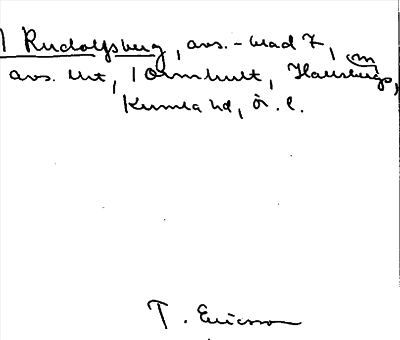 1 Rudolfsberg, avs.-blad 7, m
avs. blt, 1 Ormhult, Hallsbergs,
Kumla hd, Ö. l.
T. Ericsson